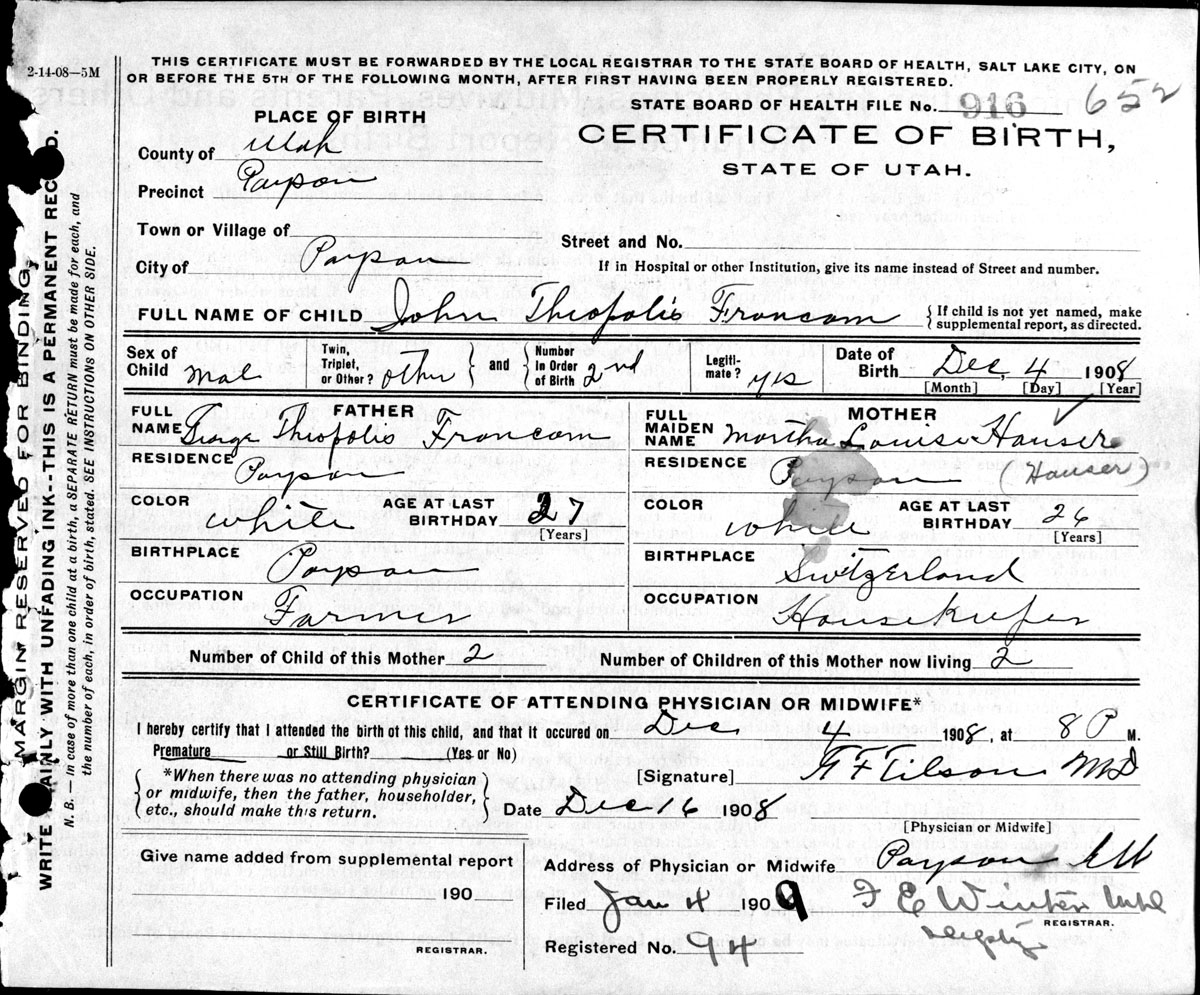 2-14-08—5M
THIS CERTIFICATE MUST BE FORWARDED BY THE LOCAL REGISTRAR TO THE STATE BOARD OF HEALTH, SALT LAKE CITY, ON
OR BEFORE THE 5TH OF THE FOLLOWING MONTH, AFTER FIRST HAVING BEEN PROPERLY REGISTERED.
STATE BOARD OF HEALTH FILE No. 916 652
PLACE OF BIRTH
CERTIFICATE OF BIRTH,
STATE OF UTAH.
County of Utah
Precinct Payson
Town or Village of
Street and No.
City of Payson
If in Hospital or other Institution, give its name instead of Street and number.
FULL NAME OF CHILD John Theopolis Francom { If child is not yet named, make
supplemental report, as directed.
Sex of Child Mal Twin, Triplet, or Other? Other } and { Number in Order of Birth 2nd Legiti-mate? yes Date of Birth Dec, 4 1908
[Month] [Day] [Year]
FATHER
FULL NAME George Theopolis Francom
RESIDENCE Payson
COLOR White AGE AT LAST BIRTHDAY 27
[Years]
BIRTHPLACE Payson
OCCUPATION Farmer
MOTHER
FULL MAIDEN NAME Martha Louise Hauser
RESIDENCE Payson (Hauser)
COLOR White AGE AT LAST BIRTHDAY 26
[Years]
BIRTHPLACE Switzerland
OCCUPATION Housekeeper
Number of Child of this Mother 2 Number of Children of this Mother now living 2
CERTIFICATE OF ATTENDING PHYSICIAN OR MIDWIFE*
I hereby certify that I attended the birth of this child, and that it occured on Dec 4 1908, at 8 P M.
Premature or Still Birth? (Yes or No)
{ *When there was no attending physician
or midwife, then the father, householder,
etc., should make this return. }
[Signature] Tilson MD
Date Dec 16 1908
[Physician or Midwife]
Give name added from supplemental report
190
REGISTRAR.
Address of Physician or Midwife Payson
Filed Jan 4 1909 F E Winter
REGISTRAR.
Deputy
Registered No. 94
MARGIN RESERVED FOR BINDING.
WRITE PLAINLY WITH UNFADING INK--THIS IS A PERMANENT RECORD.
N. B. — in case of more than one child at a birth, a SEPARATE RETURN must be made for each, and
the number of each, in order of birth, stated. SEE INSTRUCTIONS ON OTHER SIDE.